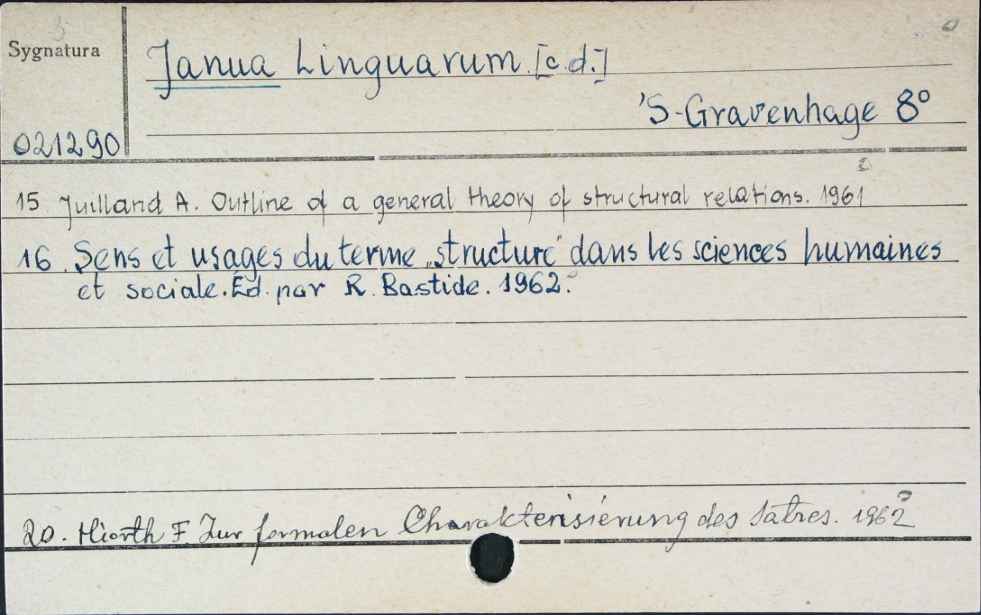 Sygnatura
Janua Linguarum. [c.d.]
'S-Gravenhage 8°
021290
15 Juilland A. Outline of a general theory of structural relations. 1961
16. Sens et usages du terme „structure” dans les sciences humaines
et sociale. Ed. par R. Bastide. 1962.
20. Hiorth F Zur formalen Charakterisierung des Satres. 1962